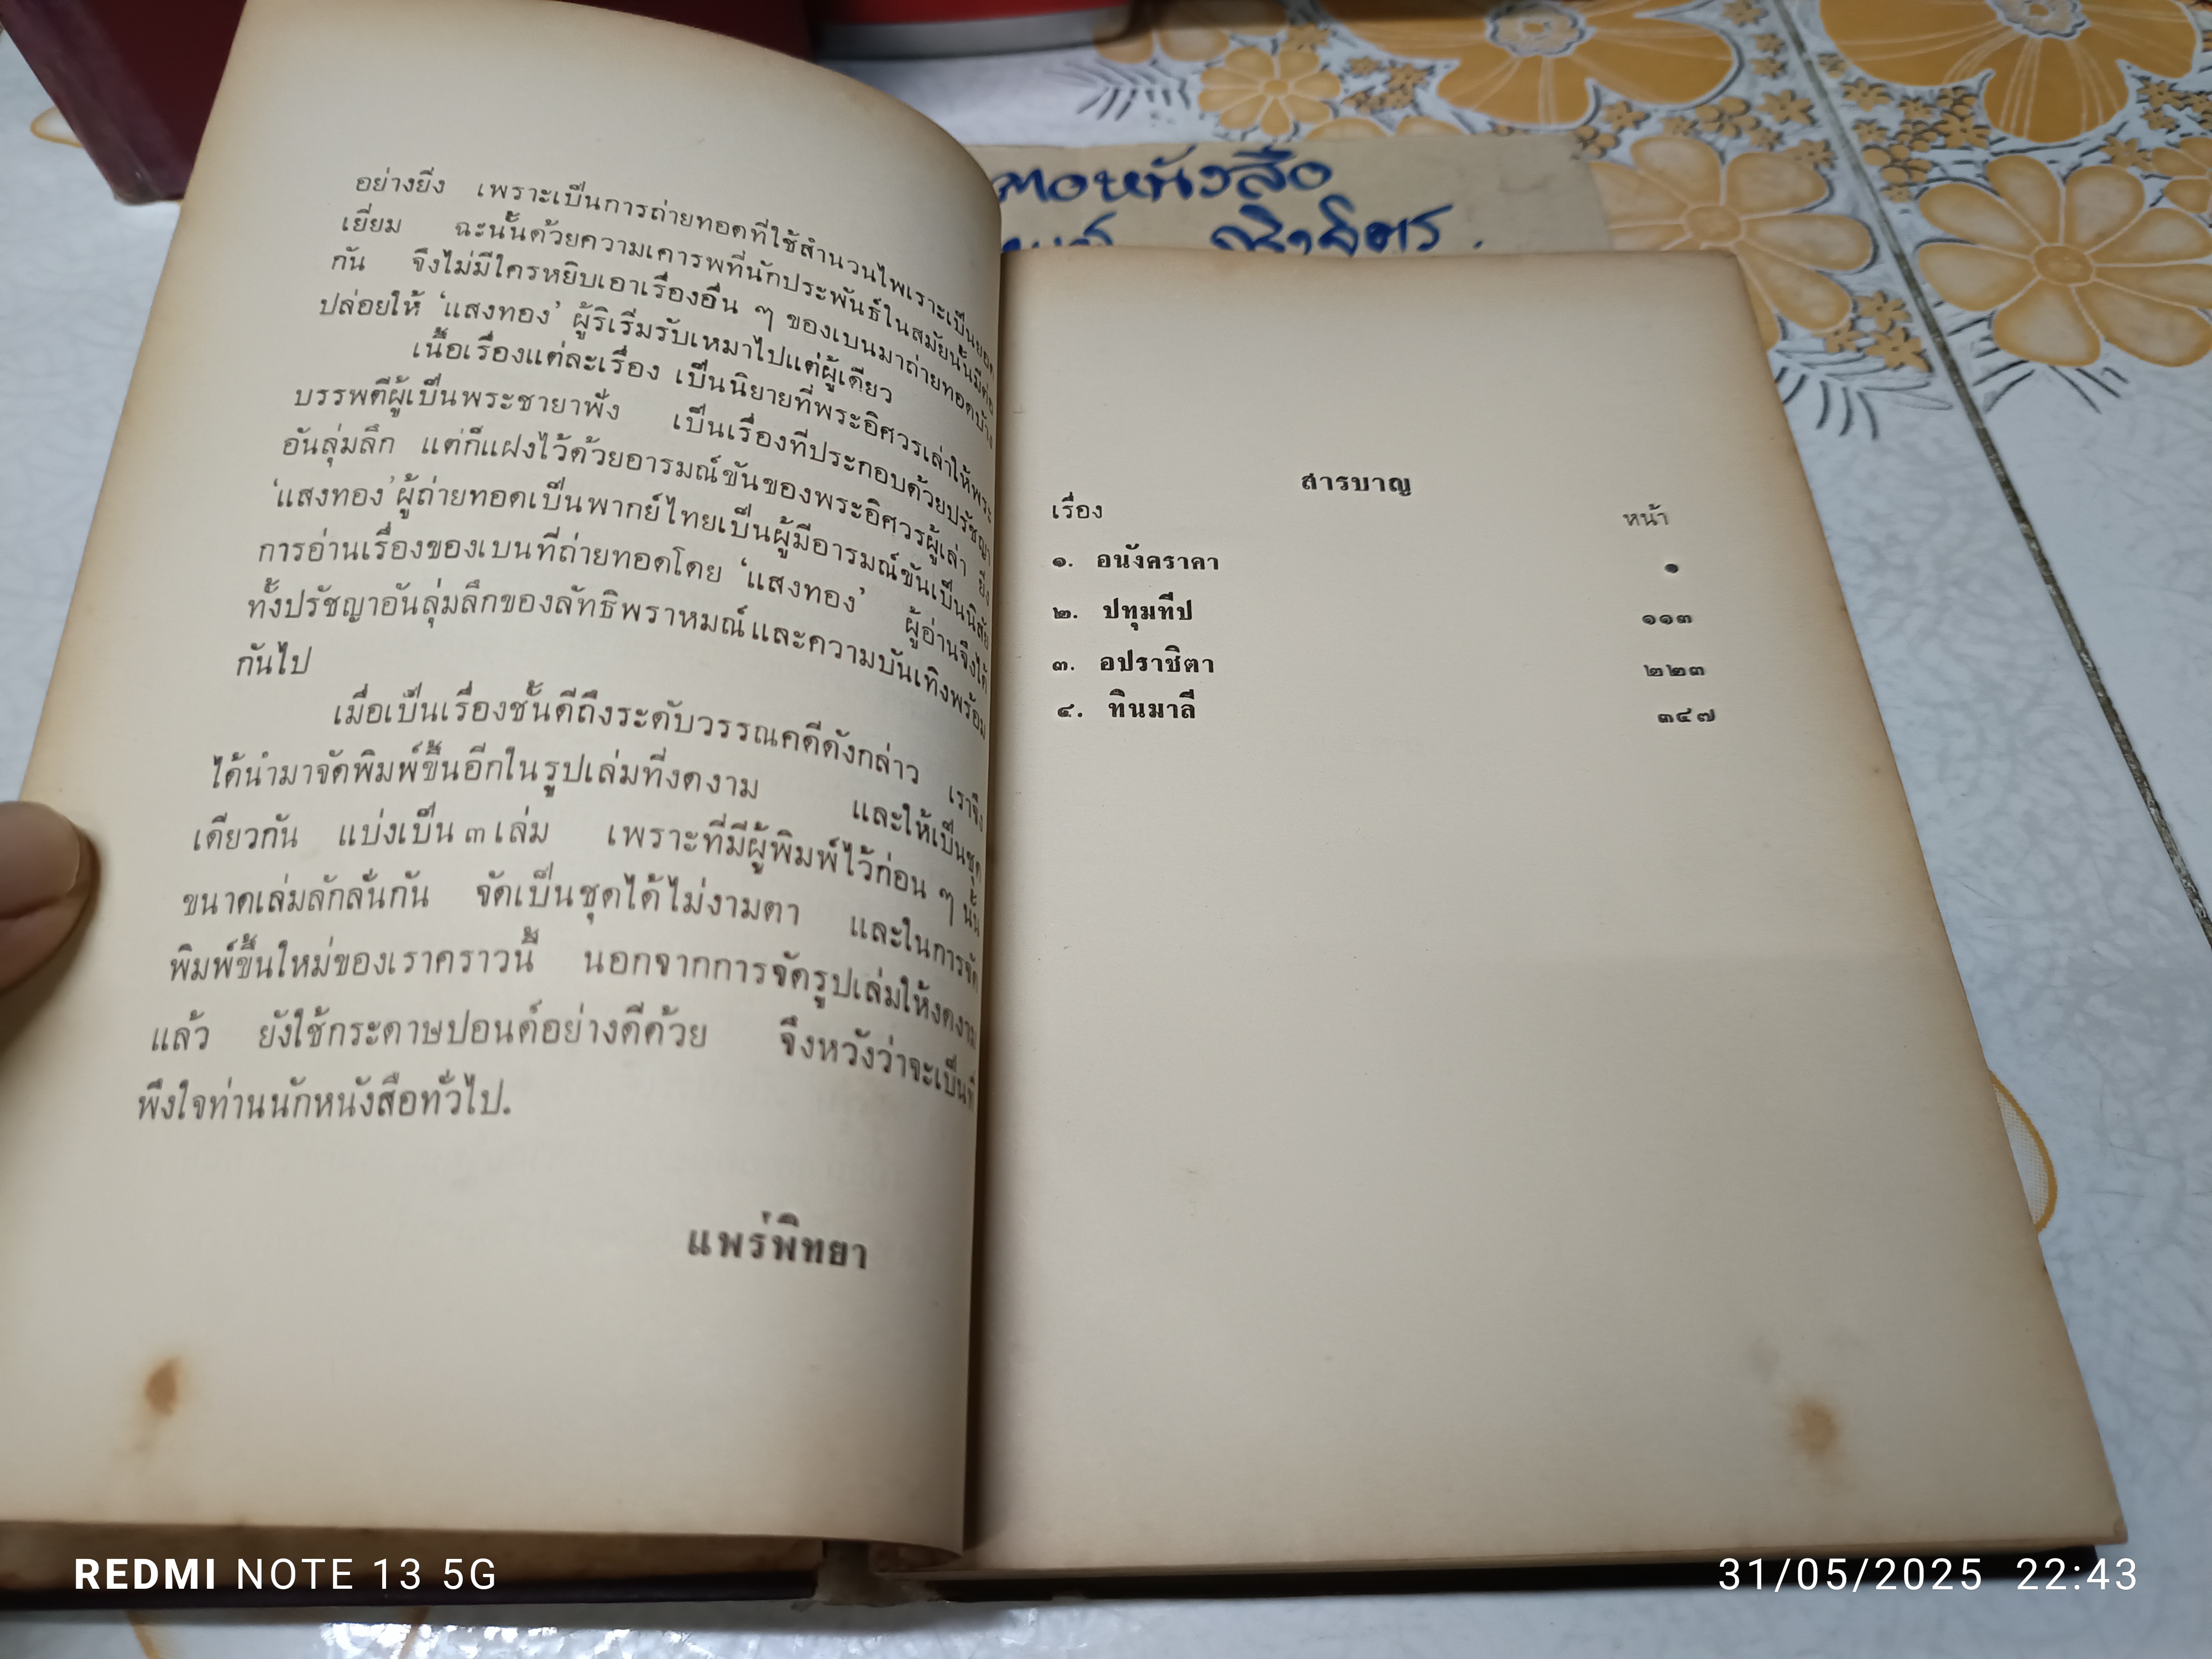 อย่างยิ่ง เพราะเป็นการถ่ายทอดที่ใช้สำนวนไพเราะเป็นยอด
เยี่ยม ฉะนั้นด้วยความเคารพที่นักประพันธ์ในสมัยนั้นมีต่อ
กัน จึงไม่มีใครหยิบเอาเรื่องอื่น ๆ ของเบนมาถ่ายทอดบ้าง
ปล่อยให้ ‘แสงทอง’ ผู้ริเริ่มรับเหมาไปแต่ผู้เดียว
เนื้อเรื่องแต่ละเรื่อง เป็นนิยายที่พระอิศวรเล่าให้พระ
บรรพตีผู้เป็นพระชายาฟัง เป็นเรื่องที่ประกอบด้วยปรัชญา
อันลุ่มลึก แต่ก็แฝงไว้ด้วยอารมณ์ขันของพระอิศวรผู้เล่า ยิ่ง
‘แสงทอง’ ผู้ถ่ายทอดเป็นพากย์ไทยเป็นผู้มีอารมณ์ขันเป็นนิสัย
การอ่านเรื่องของเบนที่ถ่ายทอดโดย ‘แสงทอง’ ผู้อ่านจึงได้
ทั้งปรัชญาอันลุ่มลึกของลัทธิพราหมณ์และความบันเทิงพร้อม
กันไป
เมื่อเป็นเรื่องชั้นดีถึงระดับวรรณคดีดังกล่าว เราจึง
ได้นำมาจัดพิมพ์ขึ้นอีกในรูปเล่มที่งดงาม และให้เป็นชุด
เดียวกัน แบ่งเป็น ๓ เล่ม เพราะที่มีผู้พิมพ์ไว้ก่อน ๆ นั้น
ขนาดเล่มลักลั่นกัน จัดเป็นชุดได้ไม่งามตา และในการจัด
พิมพ์ขึ้นใหม่ของเราคราวนี้ นอกจากการจัดรูปเล่มให้งดงาม
แล้ว ยังใช้กระดาษปอนด์อย่างดีด้วย จึงหวังว่าจะเป็นที่
พึงใจท่านนักหนังสือทั่วไป.
แพร่พิทยา
หนังสือ
สารบาญ
เรื่อง หน้า
๑. อนังคราคา ๑
๒. ปทุมทีป ๑๑๓
๓. อปราชิตา ๒๒๓
๔. ทินมาลี ๓๔๗
REDMI NOTE 13 5G
31/05/2025 22:43